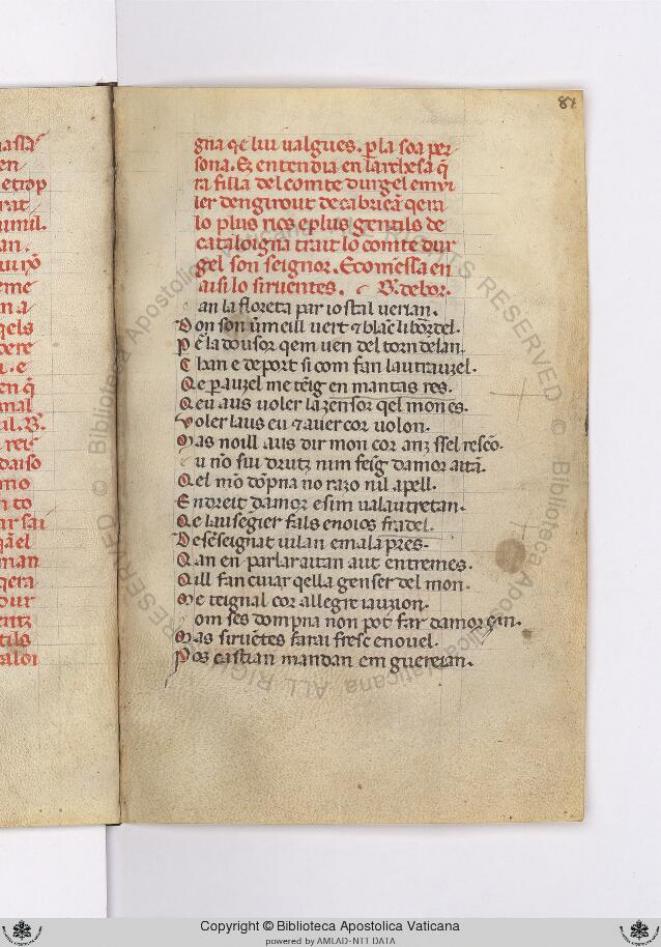 81
gna qe lui ualgues. p̱ la soa per
sona. Et entendia en la rcbesa q̃
ra filla del comte durgel en uir
ler den girout de cabricã qera
lo plus rics e plus gentils de
cataloigna trait lo comte dur
gel son seignor. E comẽssa en
aisi lo siruentes. B. de bor.
an la floreta par iostal uerian.
Don son ũmeill uert ⁊ blãc li bõrdel.
Pẽ la dousor qem uen del torn delan.
Chan e deport si com fan lautr auzel.
Qe p̱ auzel me tẽig en mantas res.
Qeu aus uoler la zensor qel mon es.
Voler laus eu ⁊ auer cor uolon.
Mas noill aus dir mon cor anz lsel rescõ.
u nõ sui drutz nim feĩg damor aitã.
Qel mõ dõpna no razo nil apell.
En dreit damor e sim ual autretan.
Qe lausegier fals enoios fradel.
Desẽseignat uilan e mal apres.
Qan en parlar aitan aut entremes.
Qill fan cuiar qella genser del mon.
Me teignal cor allegre iauzion.
om ses dompna non pot far damor çan.
Mas siruẽtes farai fresc e nouel.
Pos castian mandan em guereian.
mil.
an.
eme
n a
qels
. e
en q̃
mal
il. B.
rei
mo
ar sai
qãel
man
qera
dur
entz
tils
taloi
Biblioteca Apostolica Vaticana ALL RIGHTS RESERVED ©
Copyright © Biblioteca Apostolica Vaticana
powered by AMLAD-NTT DATA